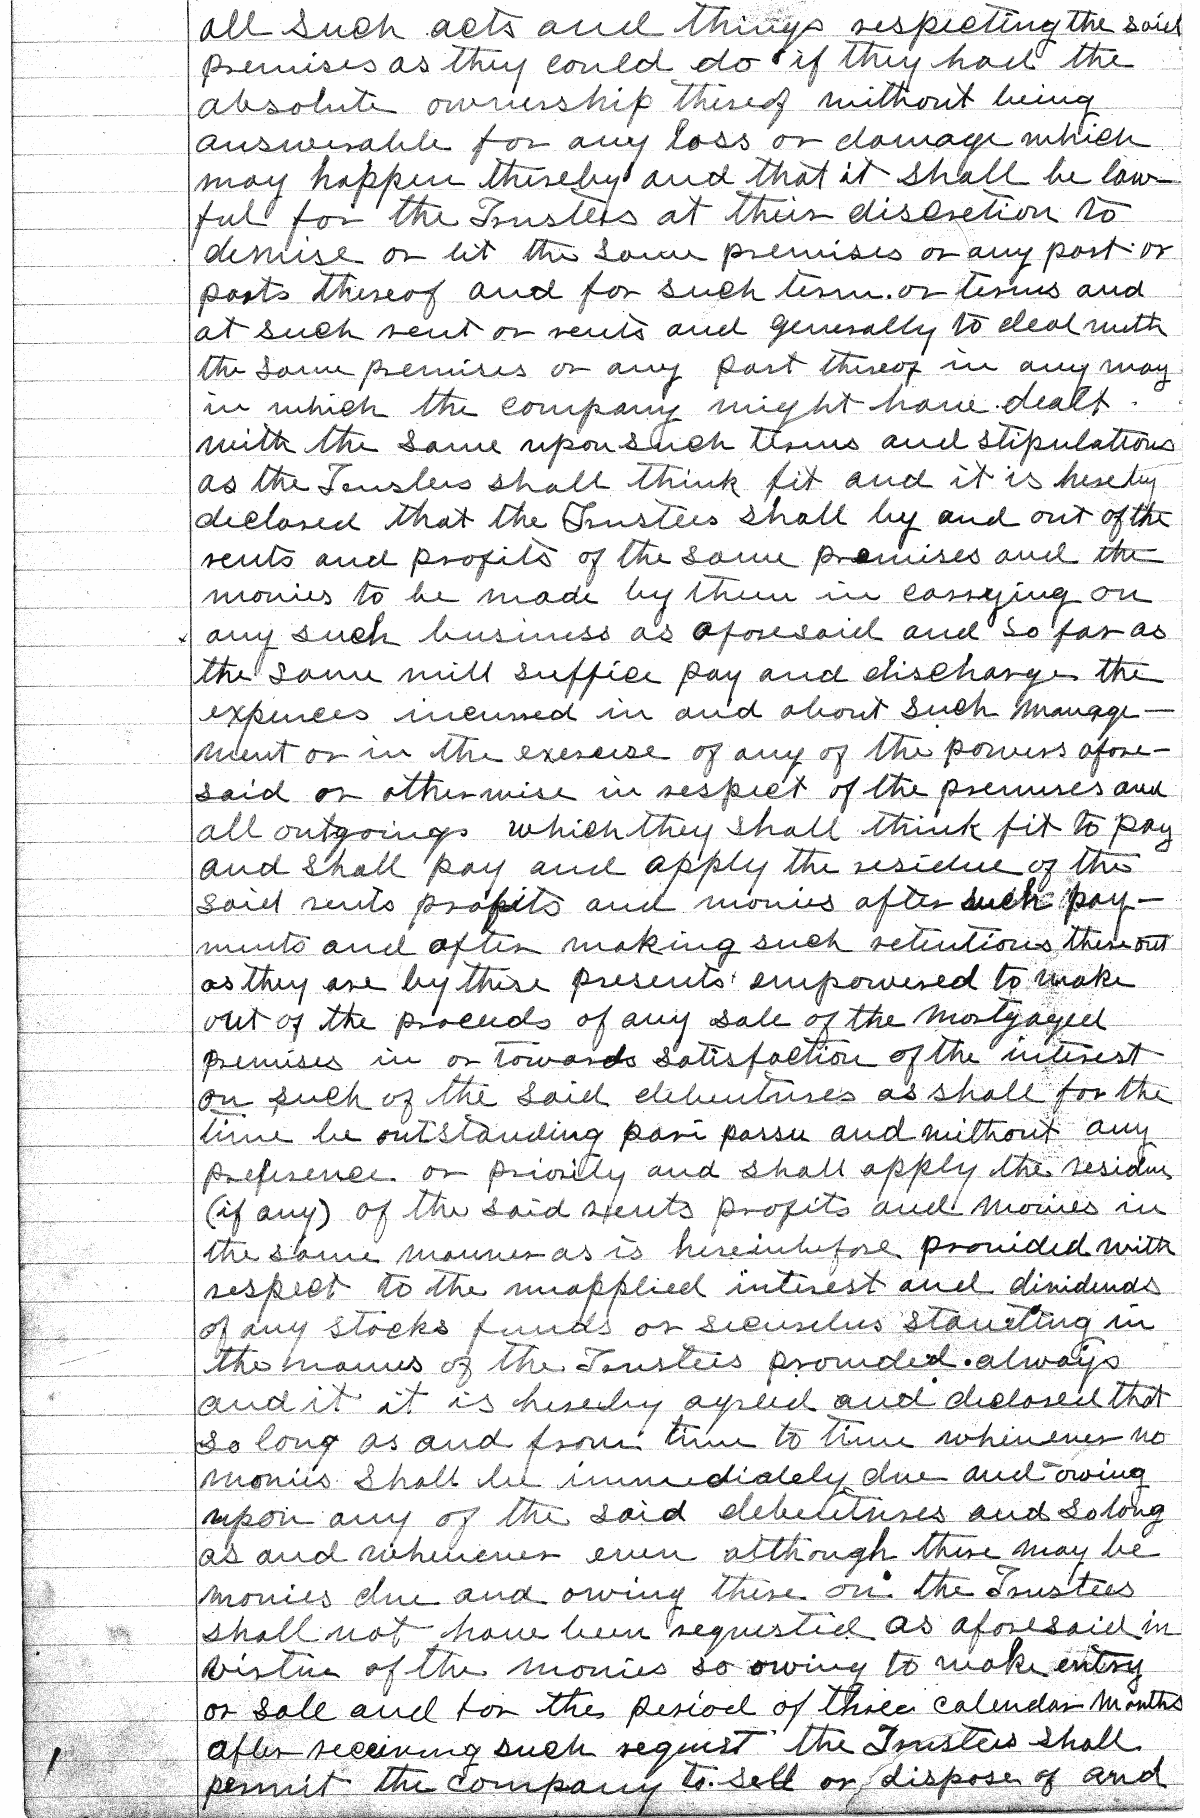 all such acts and things respecting the said
premises as they could do if they had the
absolute ownership thereof without being
answerable for any loss or damage which
may happen thereby and that it shall be law-
ful for the Trustees at their discretion to
demise or let the same premises or any part or
parts thereof and for such term or terms and
at such rent or rents and generally to deal with
the same premises or any part thereof in any way
in which the company might have dealt
with the same upon such terms and stipulations
as the Trustees shall think fit and it is hereby
declared that the Trustees shall by and out of the
rents and profits of the same premises and the
monies to be made by them in carrying on
any such business as aforesaid and so far as
the same will suffice pay and discharge the
expences incurred in and about such manage-
ment or in the exercise of any of the powers afore-
said or otherwise in respect of the premises and
all outgoings which they shall think fit to pay
and shall pay and apply the residue of the
said rents profits and monies after such pay-
ments and after making such retentions thereout
as they are by these presents empowered to make
out of the proceeds of any sale of the mortgaged
premises in or towards satisfaction of the interest
on such of the said debentures as shall for the
time be outstanding pari passu and without any
preference or priority and shall apply the residue
(if any) of the said rents profits and monies in
the same manner as is hereinbefore provided with
respect to the unapplied interest and dividends
of any stocks funds or securities standing in
the names of the Trustees provided always
and it it is hereby agreed and declared that
so long as and from time to time whenever no
monies shall be immediately due and owing
upon any of the said debentures and so long
as and whenever even although there may be
monies due and owing there on the Trustees
shall not have been requested as aforesaid in
virtue of the monies so owing to make entry
or sale and for the period of three calendar months
after receiving such request the Trustees shall
permit the company to sell or dispose of and